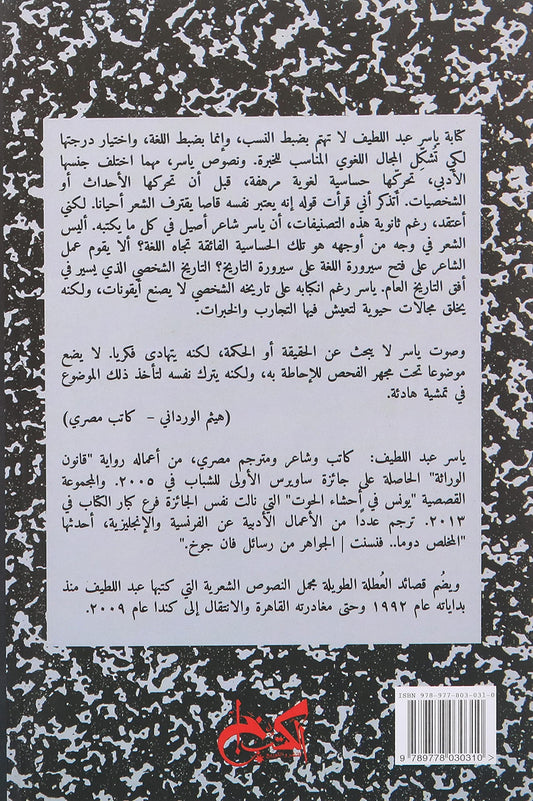 كتابة ياسر عبد اللطيف لا تهتم بضبط النسب، وإنما بضبط اللغة، واختيار درجتها
لكي تُشكّل المجال اللغوي المناسب للخبرة. ونصوص ياسر، مهما اختلف جنسها
الأدبي، تحركّها حساسية لغوية مرهفة، قبل أن تحركها الأحداث أو
الشخصيات. أتذكر أني قرأت قوله إنه يعتبر نفسه قاصا يقترف الشعر أحيانا. لكني
أعتقد، رغم ثانوية هذه التصنيفات، أن ياسر شاعر أصيل في كل ما يكتبه. أليس
الشعر في وجه من أوجهه هو تلك الحساسية الفائقة تجاه اللغة؟ ألا يقوم عمل
الشاعر على فتح سيرورة اللغة على سيرورة التاريخ؟ التاريخ الشخصي الذي يسير في
أفق التاريخ العام. ياسر رغم انكبابه على تاريخه الشخصي لا يصنع أيقونات، ولكنه
يخلق مجالات حيوية لتعيش فيها التجارب والخبرات.
وصوت ياسر لا يبحث عن الحقيقة أو الحكمة، لكنه يتهادى فكريا. لا يضع
موضوعا تحت مجهر الفحص للإحاطة به، ولكنه يترك نفسه لتأخذ ذلك الموضوع
في تمشية هادئة.
(هيثم الورداني - كاتب مصري)
ياسر عبد اللطيف: كاتب وشاعر ومترجم مصري، من أعماله رواية "قانون
الوراثة" الحاصلة على جائزة ساويرس الأولى للشباب في ٢٠٠٥. والمجموعة
القصصية "يونس في أحشاء الحوت" التي نالت نفس الجائزة فرع كبار الكتاب في
٢٠١٣. ترجم عددًا من الأعمال الأدبية عن الفرنسية والإنجليزية، أحدثها
"المخلص دوما.. فنسنت | الجواهر من رسائل فان جوخ."
ويضُم قصائد العُطلة الطويلة مجمل النصوص الشعرية التي كتبها عبد اللطيف منذ
بداياته عام ١٩٩٢ وحتى مغادرته القاهرة والانتقال إلى كندا عام ٢٠٠٩.
ISBN 978-977-803-031-0
9 789778 030310 >
الكتب خان